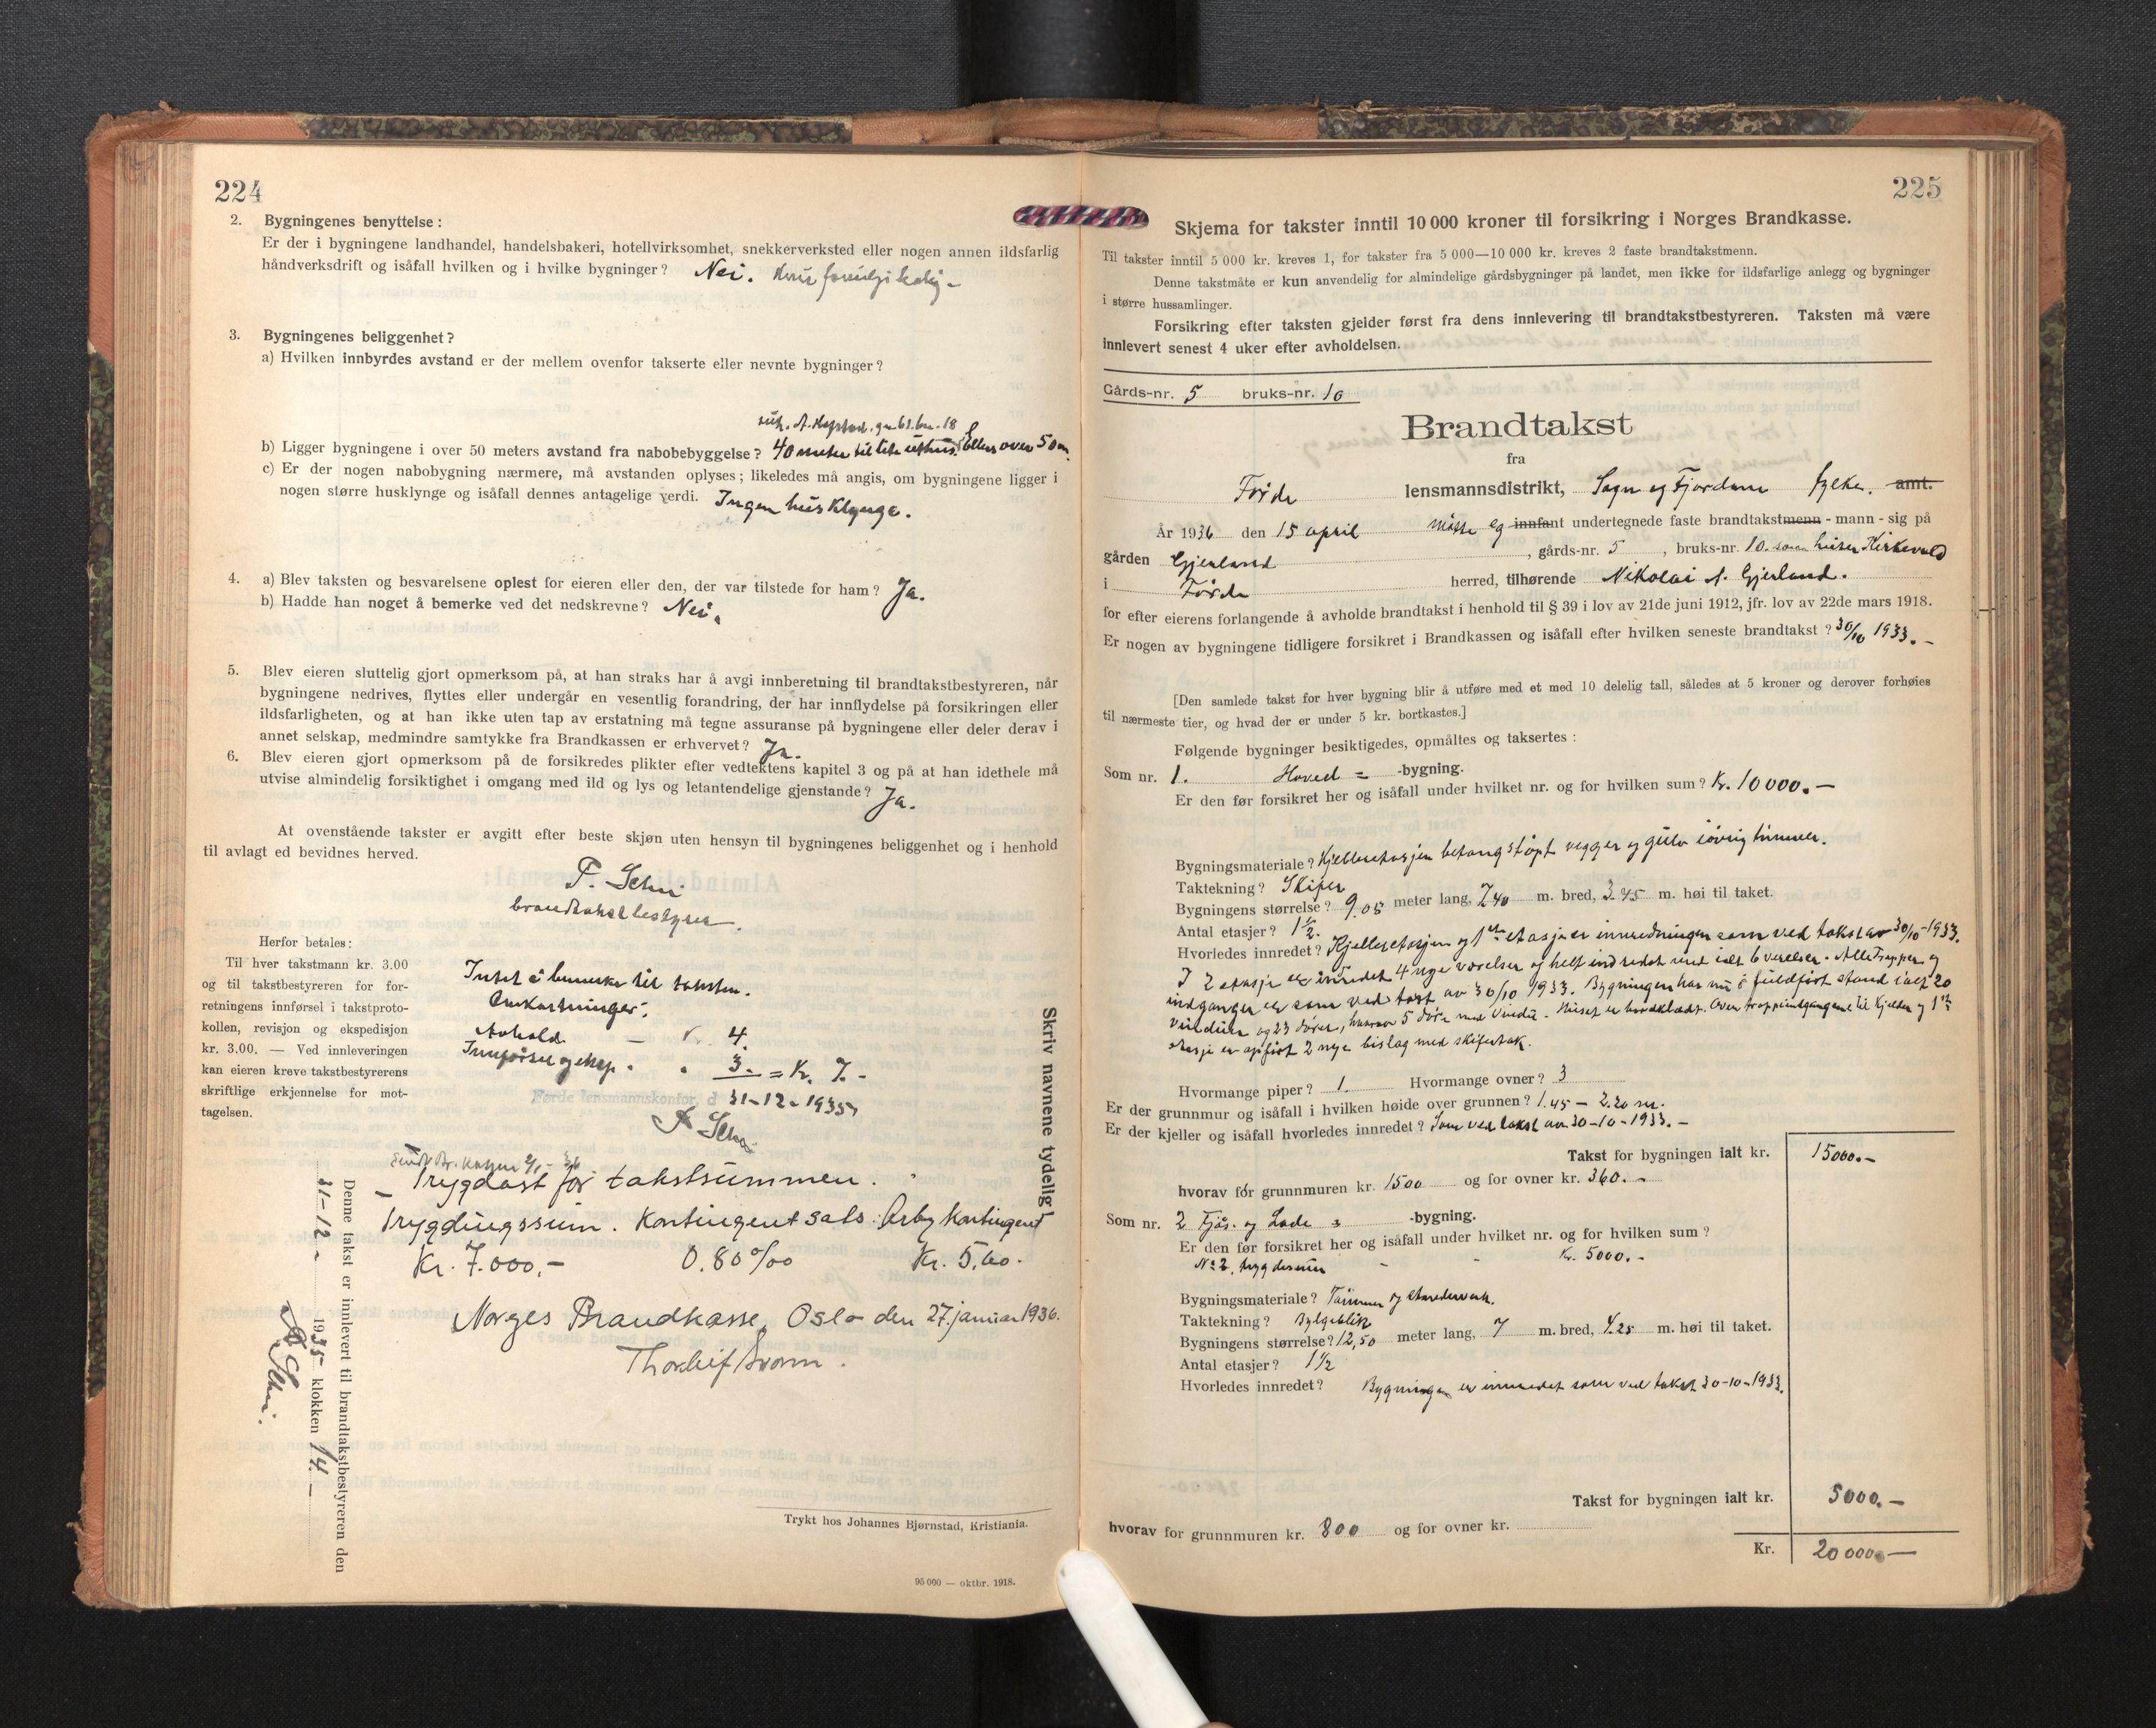 224
2. Bygningenes benyttelse :
Er der i bygningene landhandel, handelsbakeri, hotellvirksomhet, snekkerverksted eller nogen annen ildsfarlig
håndverksdrift og isåfall hvilken og i hvilke bygninger ? Nei.
3. Bygningenes beliggenhet ?
a) Hvilken innbyrdes avstand er der mellem ovenfor takserte eller nevnte bygninger ?
b) Ligger bygningene i over 50 meters avstand fra nabobebyggelse ? 40 meter til lite uthus. Ellers over 50 m.
c) Er der nogen nabobygning nærmere, må avstanden oplyses ; likeledes må angis, om bygningene ligger i
nogen større husklynge og isåfall dennes antagelige verdi. Ingen husklynge.
4. a) Blev taksten og besvarelsene oplest for eieren eller den, der var tilstede for ham ? Ja.
b) Hadde han noget å bemerke ved det nedskrevne ? Nei.
5. Blev eieren sluttelig gjort opmerksom på, at han straks har å avgi innberetning til brandtakstbestyreren, når
bygningene nedrives, flyttes eller undergår en vesentlig forandring, der har innflydelse på forsikringen eller
ildsfarligheten, og at han ikke uten tap av erstatning må tegne assuranse på bygningene eller deler derav i
annet selskap, medmindre samtykke fra Brandkassen er erhvervet ? Ja.
6. Blev eieren gjort opmerksom på de forsikredes plikter efter vedtektens kapitel 3 og på at han idethele må
utvise almindelig forsiktighet i omgang med ild og lys og letantendelige gjenstande ? Ja.
At ovenstående takster er avgitt efter beste skjøn uten hensyn til bygningenes beliggenhet og i henhold
til avlagt ed bevidnes herved.
brandtakstbestyrer.
Herfor betales :
Til hver takstmann kr. 3.00
og til takstbestyreren for for-
retningens innførsel i takstproto-
kollen, revisjon og ekspedisjon
kr. 3.00. — Ved innleveringen
kan eieren kreve takstbestyrerens
skriftlige erkjennelse for mot-
tagelsen.
Intet å bemerke til taksten.
Omkostninger:
Avhold — 4.
Innførsel og eksp. " 3. = Kr. 7.-
Førde lensmannskontor, d 31-12-1935
Trygdast for takstsummen.
Trygdingssum. Kontingentsats. Årleg kontingent
Kr. 7.000,- 0.80 ‰ Kr. 5,60.
Norges Brandkasse, Oslo den 27. januar 1936.
Skriv navnene tydelig!
Denne takst er innlevert til brandtakstbestyreren den
31-12- 1935 klokken 14.-
Trykt hos Johannes Bjørnstad, Kristiania.
95 000 — oktbr. 1918.
225
Skjema for takster inntil 10 000 kroner til forsikring i Norges Brandkasse.
Til takster inntil 5 000 kr. kreves 1, for takster fra 5 000—10 000 kr. kreves 2 faste brandtakstmenn.
Denne takstmåte er kun anvendelig for almindelige gårdsbygninger på landet, men ikke for ildsfarlige anlegg og bygninger
i større hussamlinger.
Forsikring efter taksten gjelder først fra dens innlevering til brandtakstbestyreren. Taksten må være
innlevert senest 4 uker efter avholdelsen.
Gårds-nr. 5 bruks-nr. 10
Brandtakst
fra
Førde lensmannsdistrikt, Sogn og Fjordane fylke. amt.
År 1936 den 15 april møtte eg innfant undertegnede faste brandtakstmenn - mann - sig på
gården Gjerland , gårds-nr. 5 , bruks-nr. 10
i Førde herred, tilhørende Nikolai A. Gjerland.
for efter eierens forlangende å avholde brandtakst i henhold til § 39 i lov av 21de juni 1912, jfr. lov av 22de mars 1918.
Er nogen av bygningene tidligere forsikret i Brandkassen og isåfall efter hvilken seneste brandtakst ? 30/10 1933. -
[Den samlede takst for hver bygning blir å utføre med et med 10 delelig tall, således at 5 kroner og derover forhøies
til nærmeste tier, og hvad der er under 5 kr. bortkastes.]
Følgende bygninger besiktigedes, opmåltes og taksertes :
Som nr. 1. Hoved = -bygning.
Er den før forsikret her og isåfall under hvilket nr. og for hvilken sum ? Kr. 10000.-
Bygningsmateriale ? Kjelleretasjen betongstøpt vegger og gulv iøvrig tømmer.
Taktekning ? Skifer
Bygningens størrelse ? 9.05 meter lang, 7.40 m. bred, 3.45 m. høi til taket.
Antal etasjer ? 1½.
Hvorledes innredet ? Kjelleretasjen og 1ste etasje er innredningen som ved takst av 30/10-1933.
I 2 etasje er innredet 4 nye værelser og helt indredet med ialt 6 værelser. Alle Trapper og
indganger er som ved takst av 30/10 1933. Bygningen har nu i fuldført stand ialt 20
vinduer og 23 dører, hvorav 5 døre med vindu. Huset er bordklædt. Over trappindgangene til Kjelder og 1ste
etasje er opført 2 nye bislag med skifertak.
Hvormange piper ? 1. Hvormange ovner ? 3
Er der grunnmur og isåfall i hvilken høide over grunnen ? 1.45 - 2.20 m.
Er der kjeller og isåfall hvorledes innredet ? Som ved takst av 30-10-1933. -
Takst for bygningen ialt kr. 15000.-
hvorav for grunnmuren kr. 1500 og for ovner kr. 360.-
Som nr. 2 Fjøs. og Lade = -bygning.
Er den før forsikret her og isåfall under hvilket nr. og for hvilken sum ?
No 2, trygdesum - - Kr. 5000.-
Bygningsmateriale ? Tømmer og stavverk.
Taktekning ? Bylgeblik
Bygningens størrelse ? 12,50 meter lang, 7 m. bred, 4.25 m. høi til taket.
Antal etasjer ? 1½
Hvorledes innredet ? Bygningen er innredet som ved takst 30-10-1933.
Takst for bygningen ialt kr. 5000.-
hvorav for grunnmuren kr. 800 og for ovner kr.
Kr. 20000.-